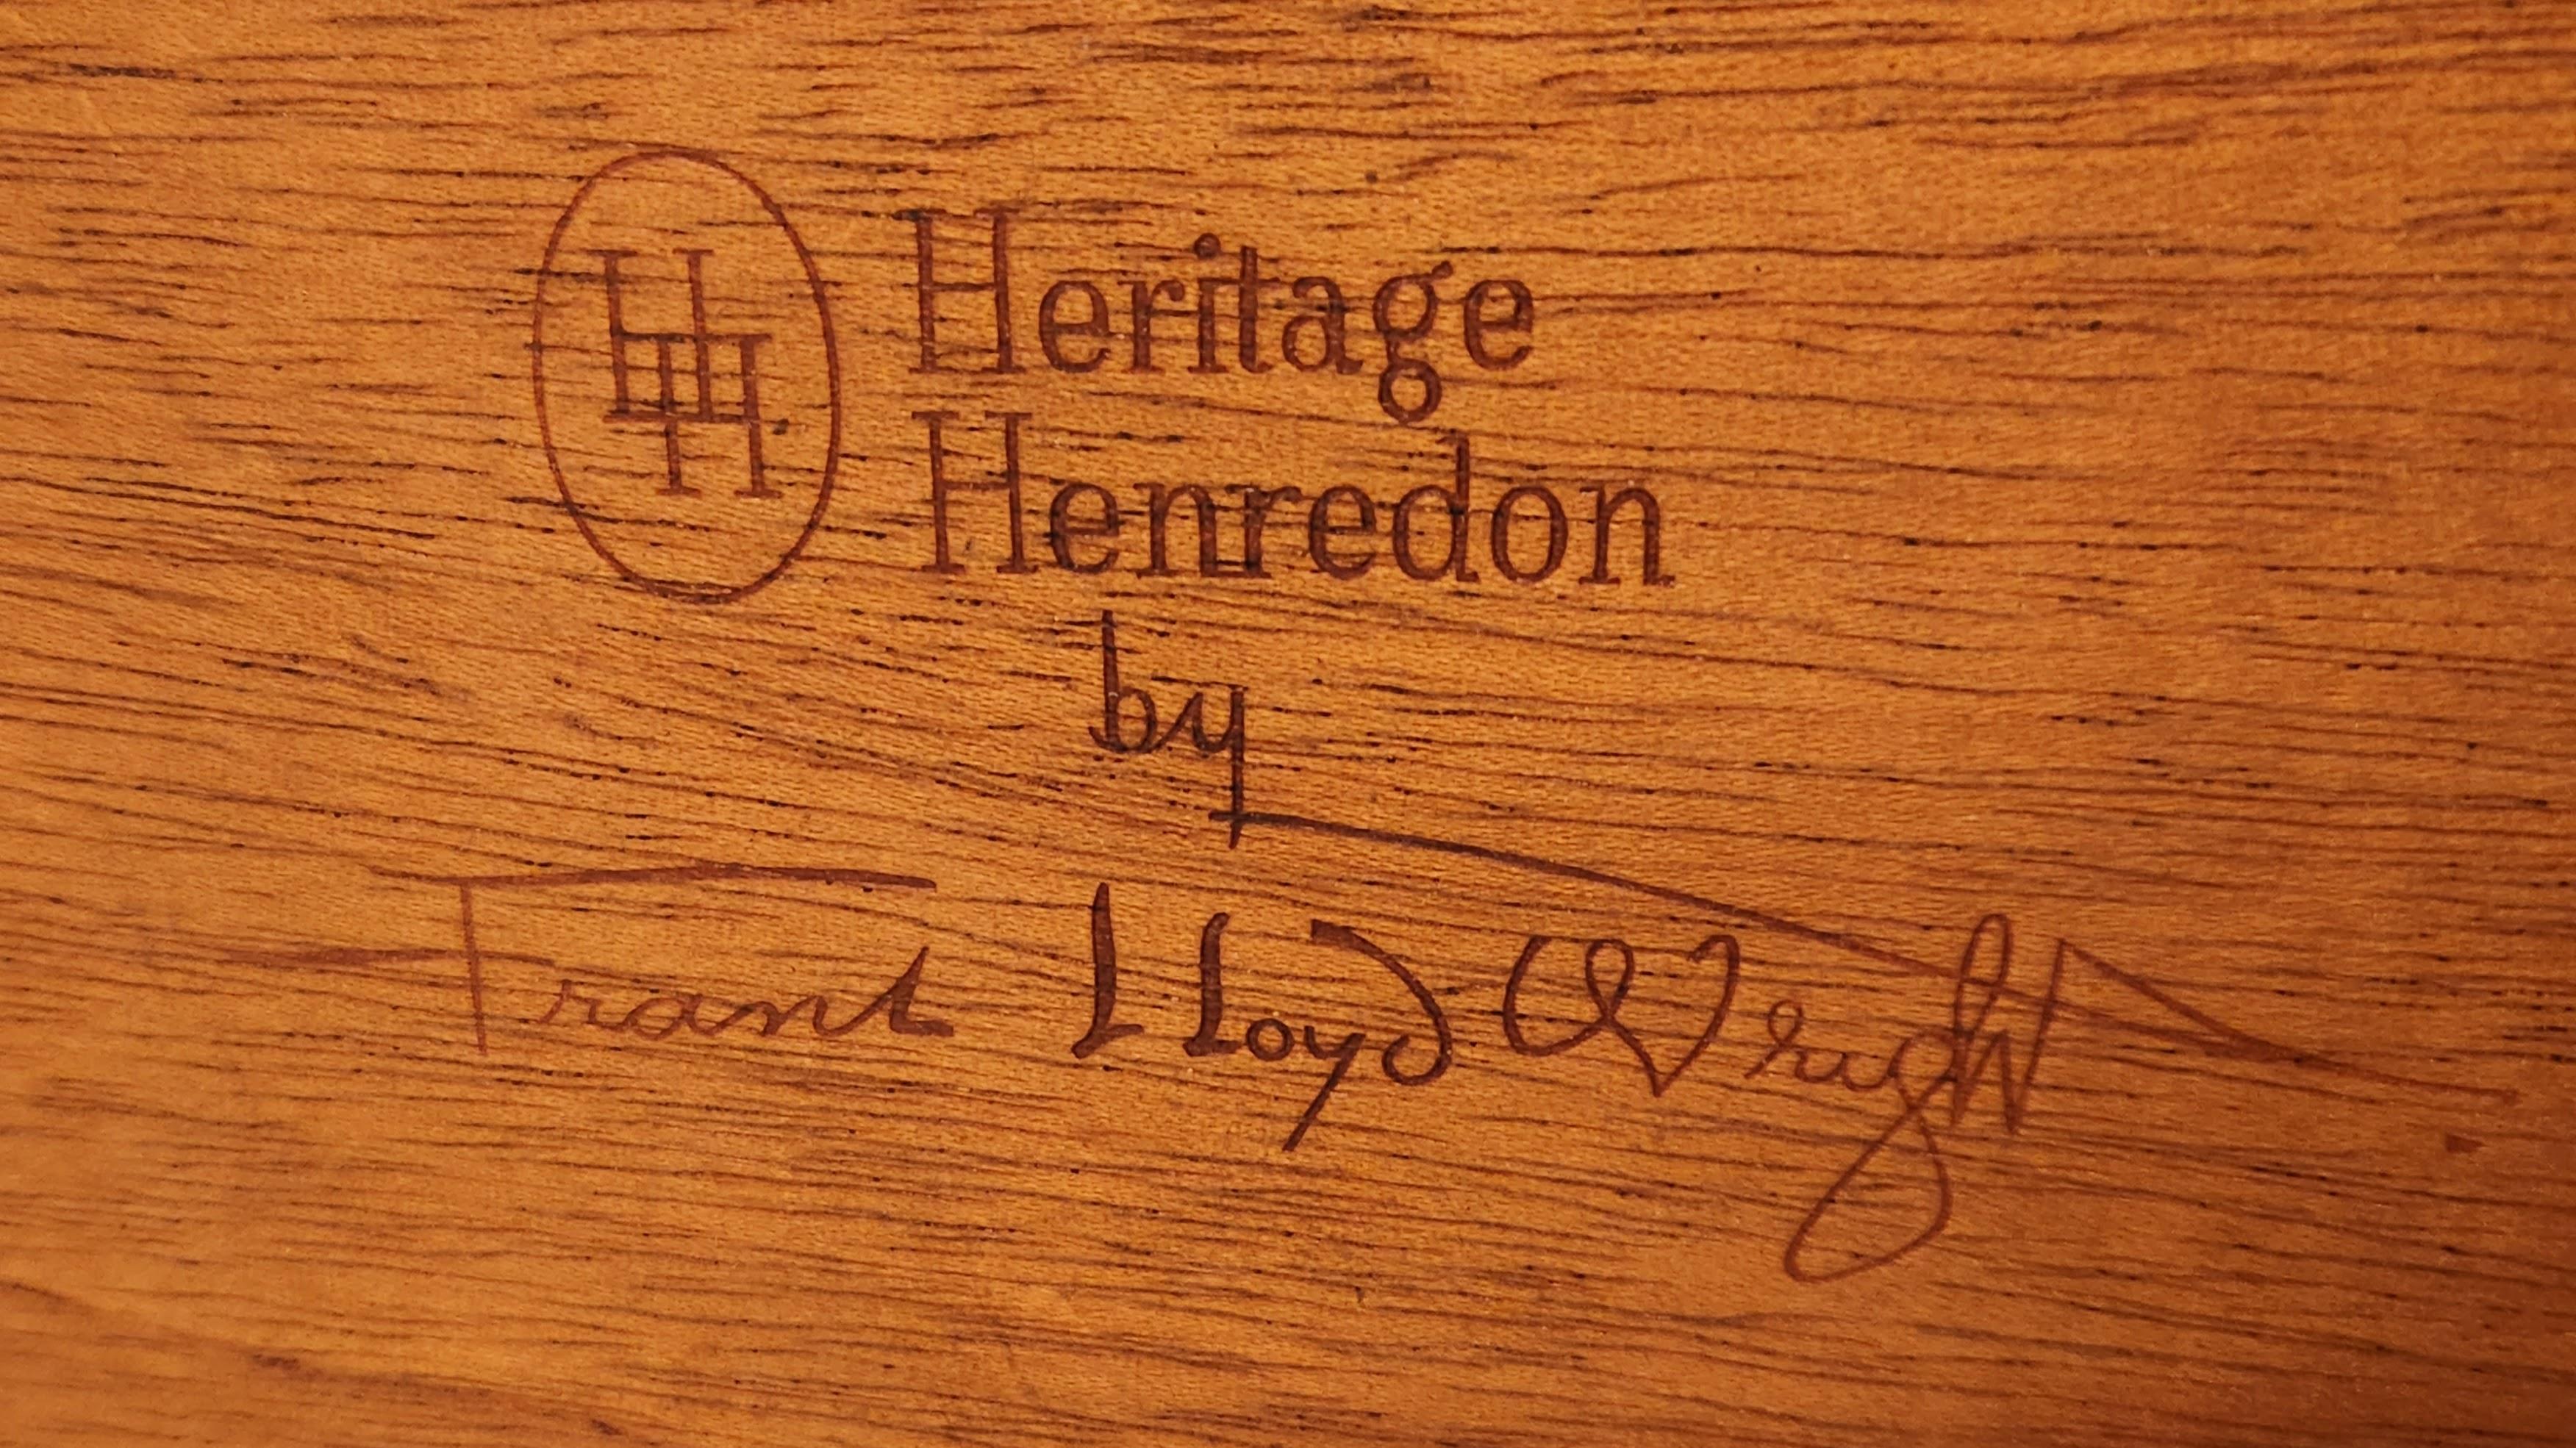 HH Heritage
Henredon
by
Frank Lloyd Wright